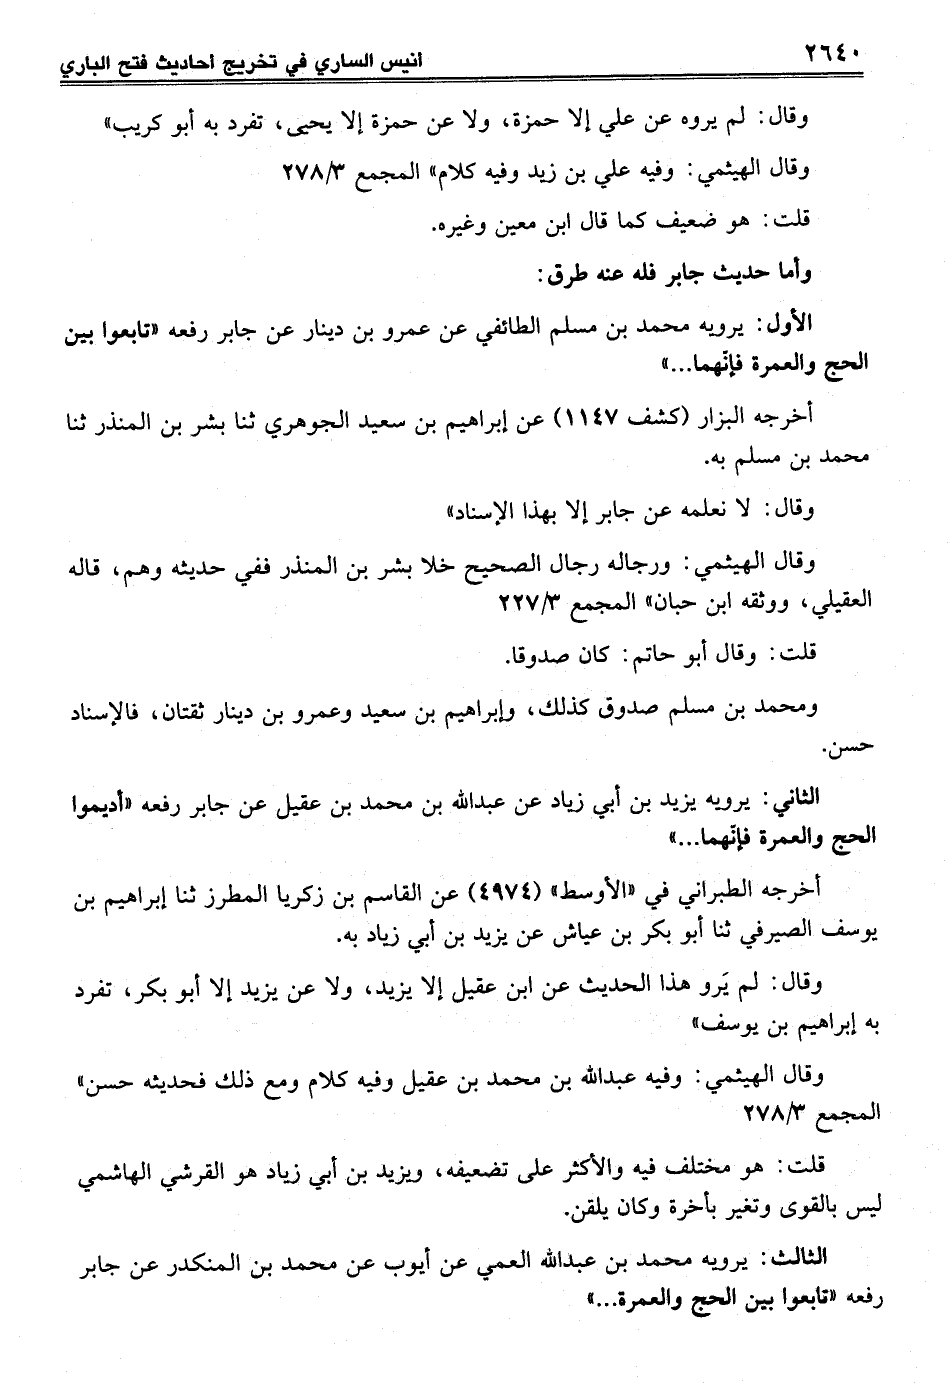 ٢٦٤٠
أنيس الساري في تخريج أحاديث فتح الباري
وقال: لم يروه عن علي إلا حمزة، ولا عن حمزة إلا يحيى، تفرد به أبو كريب»
وقال الهيثمي: وفيه علي بن زيد وفيه كلام» المجمع ٢٧٨/٣
قلت: هو ضعيف كما قال ابن معين وغيره.
وأما حديث جابر فله عنه طرق:
الأول: يرويه محمد بن مسلم الطائفي عن عمرو بن دينار عن جابر رفعه «تابعوا بين
الحج والعمرة فإنّهما...»
أخرجه البزار (كشف ١١٤٧) عن إبراهيم بن سعيد الجوهري ثنا بشر بن المنذر ثنا
محمد بن مسلم به.
وقال: لا نعلمه عن جابر إلا بهذا الإسناد»
وقال الهيثمي: ورجاله رجال الصحيح خلا بشر بن المنذر ففي حديثه وهم، قاله
العقيلي، ووثقه ابن حبان» المجمع ٢٢٧/٣
قلت: وقال أبو حاتم: كان صدوقا.
ومحمد بن مسلم صدوق كذلك، وإبراهيم بن سعيد وعمرو بن دينار ثقتان، فالإسناد
حسن.
الثاني: يرويه يزيد بن أبي زياد عن عبدالله بن محمد بن عقيل عن جابر رفعه «أديموا
الحج والعمرة فإنّهما...»
أخرجه الطبراني في «الأوسط» (٤٩٧٤) عن القاسم بن زكريا المطرز ثنا إبراهيم بن
يوسف الصيرفي ثنا أبو بكر بن عياش عن يزيد بن أبي زياد به.
وقال: لم يَرو هذا الحديث عن ابن عقيل إلا يزيد، ولا عن يزيد إلا أبو بكر، تفرد
به إبراهيم بن يوسف»
وقال الهيثمي: وفيه عبدالله بن محمد بن عقيل وفيه كلام ومع ذلك فحديثه حسن»
المجمع ٢٧٨/٣
قلت: هو مختلف فيه والأكثر على تضعيفه، ويزيد بن أبي زياد هو القرشي الهاشمي
ليس بالقوى وتغير بأخرة وكان يلقن.
الثالث: يرويه محمد بن عبدالله العمي عن أيوب عن محمد بن المنكدر عن جابر
رفعه «تابعوا بين الحج والعمرة...»